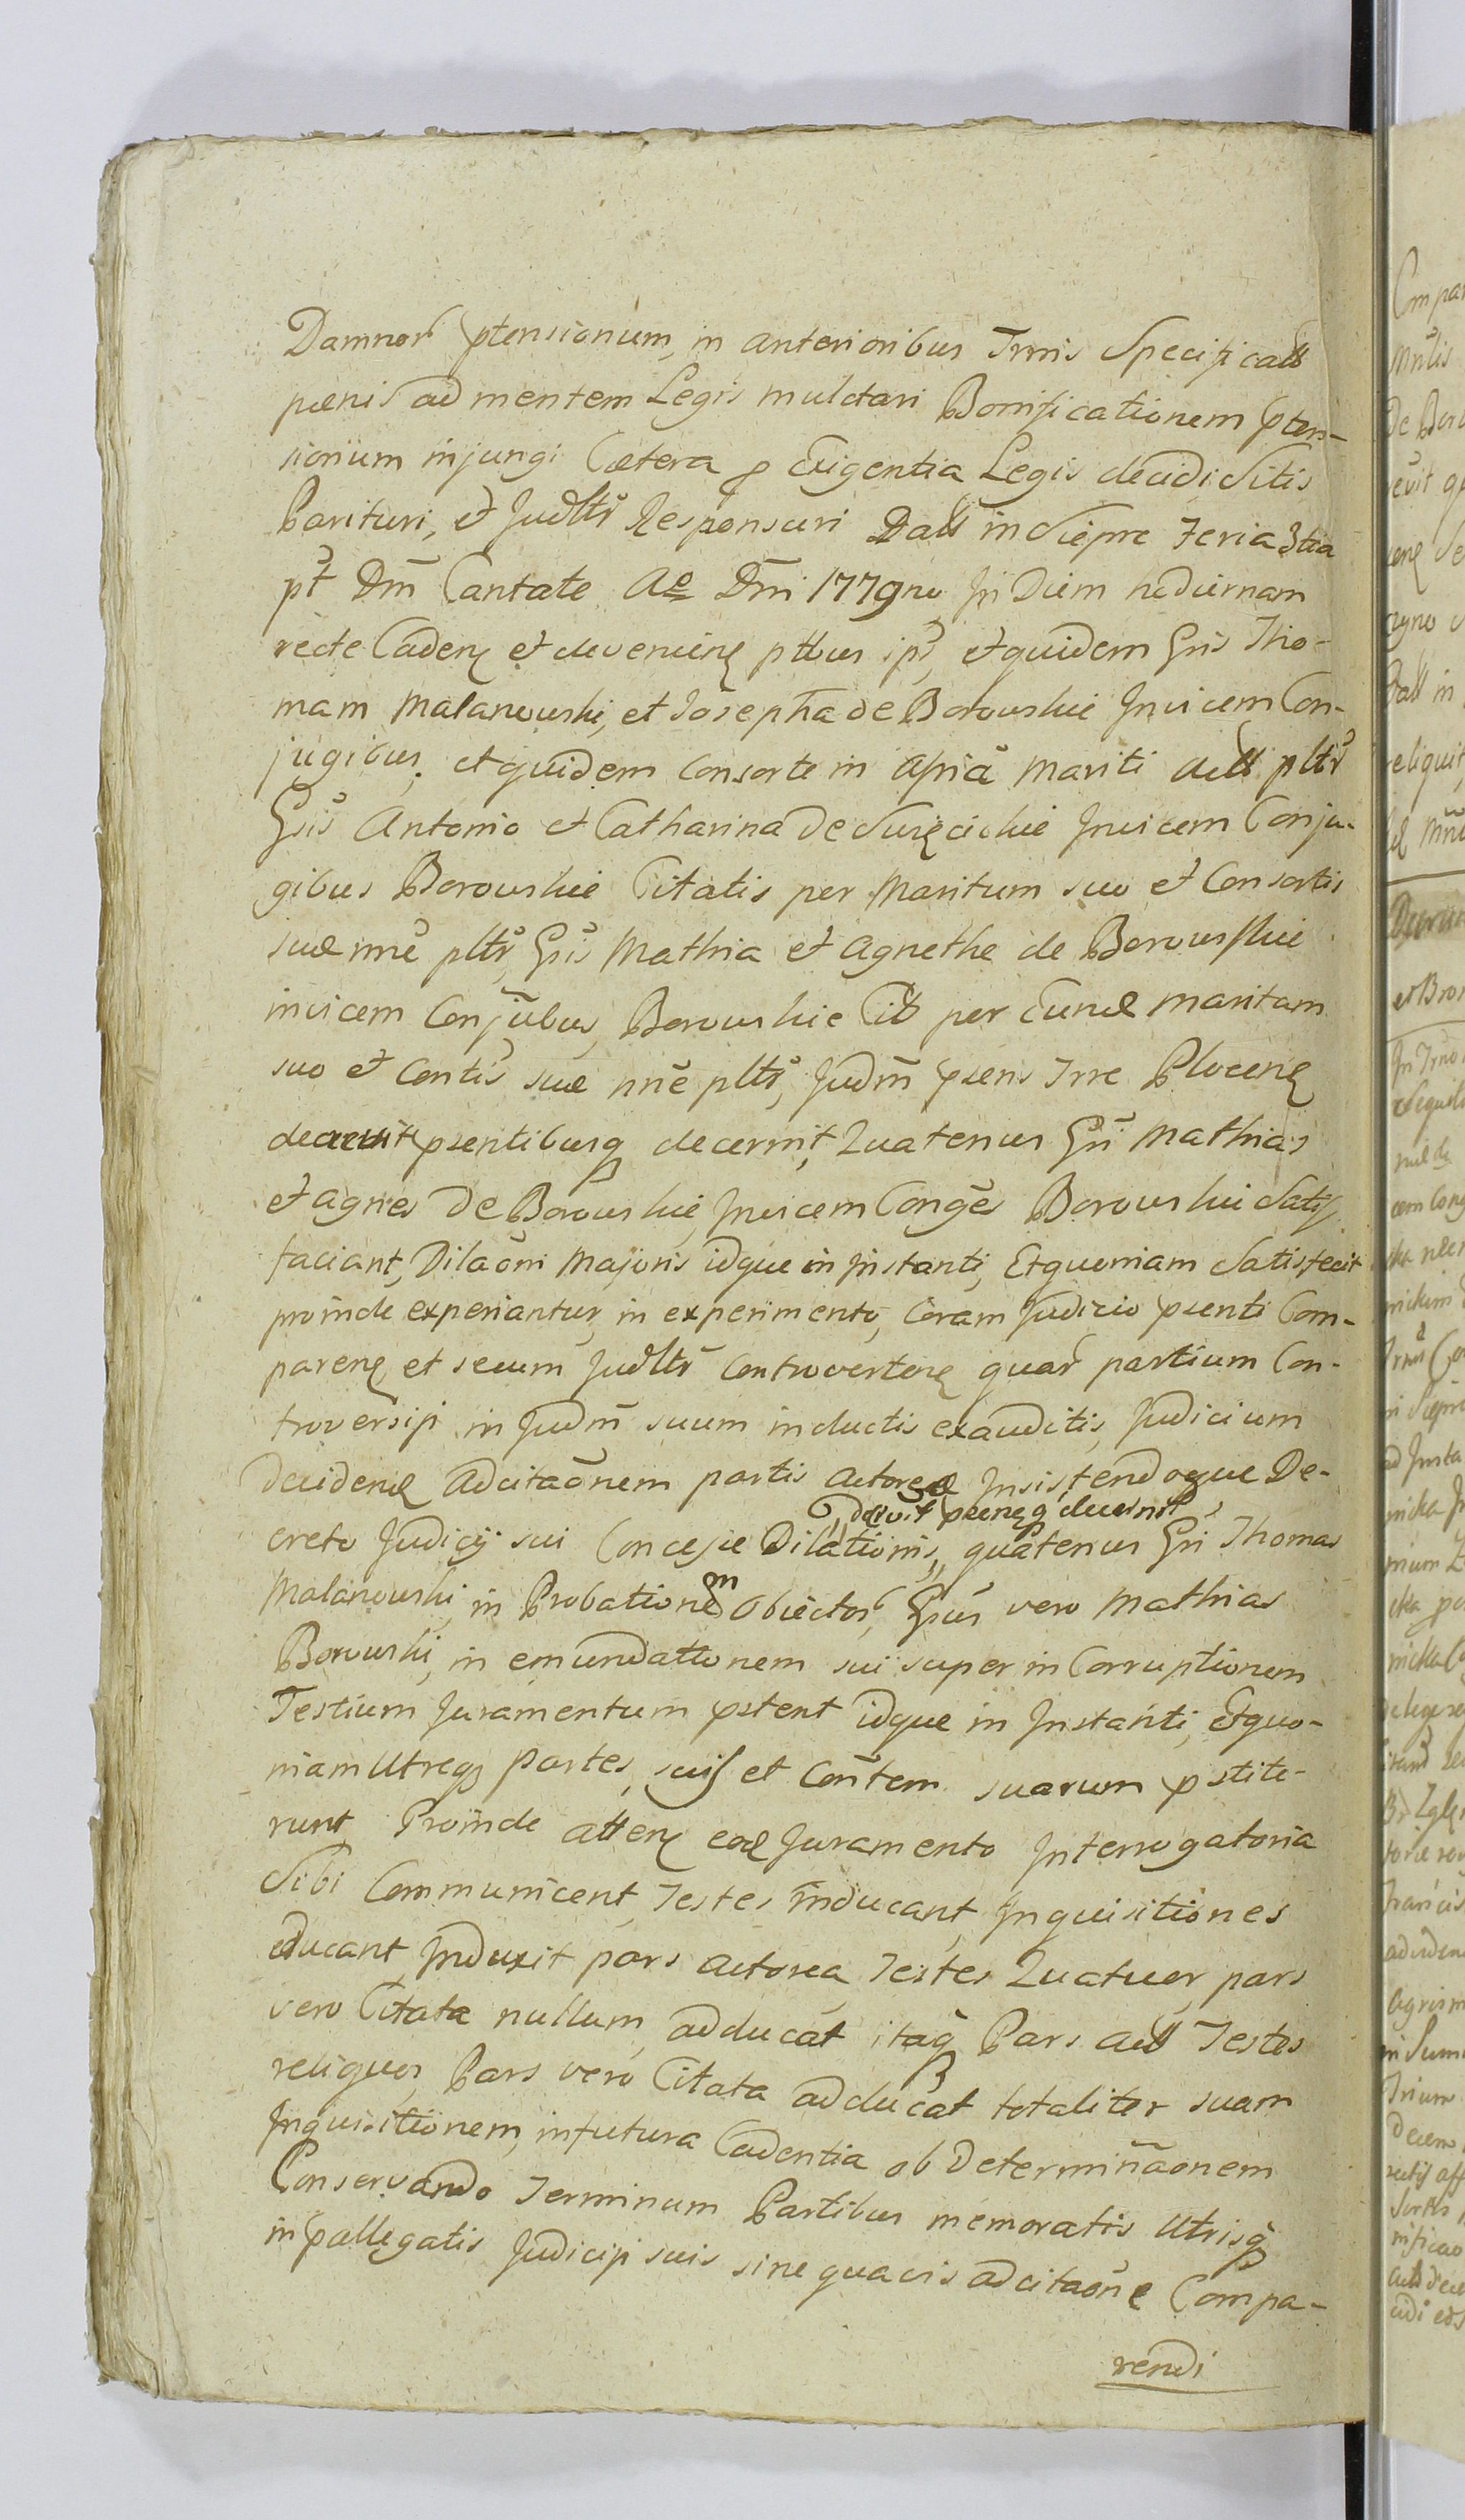 Damnor ptensionum, in anterioribus Trmis Specificall
pænis ad mentem Legis mulctari Bonificationem pten-
sionum injungi Cætera p Exigentia Legis decidi Sitis
Parituri, et Judltr Responsuri Datt in Sierpre Feria 3tia
pt Dm Cantate Ao Dni 1779no In Diem hodiernam
recte Caden et devenien ptbus ips, et quidem Gsis Tho-
mam Malanowski, et Josepha de Borowskie Invicem Con-
jugibus, et quidem Consorte in Assia Mariti Actt pltr
Gsis Antonio et Catharina de Suręcickie Invicem Conju-
gibus Borowskie Citatis per Maritum suo et Consortis
suæ nne pltr, Gsis Mathia et Agnethe de Borowskie
invicem Conjubus, Borowskie Citt per Eund maritum
suo et Contis suæ nne pltr, Judm psens Trre Plocen
decrevit psentibusq decernit, Quatenus Gsi Mathias
et Agnes De Borowskie, Invicem Conges Borowskie Satis
faciant, Dilaoni Majoris idque in Instanti, Et quoniam Satisfecit
proinde experiantur, in experimento, Coram Judicio psenti Com-
paren, et secum Judltr Controverten quar partium Con-
troversijs in Judm suum inductis exauditis, Judicium
deciden Adcitaonem partis Actoreæ Insistendoque De-
, Decrevit psenq decernit
creto Judicij sui Concessæ Dilationis, quatenus Gsi Thomas
Malanowski, in Probationem Obiector, Gsus vero Mathias
Borowski, in emundationem sui super in Corruptionem
Testium Juramentum pstent idque in Instanti, Et quo-
niam Utreq partes, suis et Contem suarum pstite-
runt, Proinde atten eod Juramento Interrogatoria
Sibi Communicent, Testes inducant, Inquisitiones
educant, Induxit pars Actorea Testes Quatuor, pars
vero Citata nullum, adducat itaq Pars Actt Testes
reliquos, Pars vero Citata adducat totaliter suam
Inquisitionem, in futura Cadentia ob Determinaonem
Conservando Terminum Partibus memoratis Utrisq
in pallegatis Judicijs suis sine quavis adcitaone Compa-
rendi